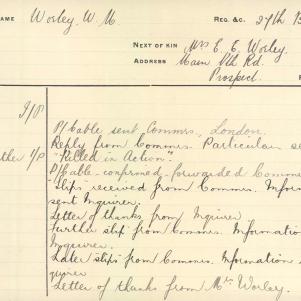 NAME Worley. W. M REG. &C. 27th B
NEXT OF KIN Mrs E. E. Worley
ADDRESS Main Nth Rd.
Prospect
I/P
P/Cable sent Commrs, London.
Reply from Commrs. Particulars se
ther I/P "Killed in Action".
P/Cable confirmed forwarded Comm
Slips received from Commrs. Inform
sent Inquirer.
Letter of thanks from Inquirer
Further slip from Commrs. Information
Inquirer.
Later slips from Commrs. Information s
quirer
Letter of thanks from Mrs Worley.